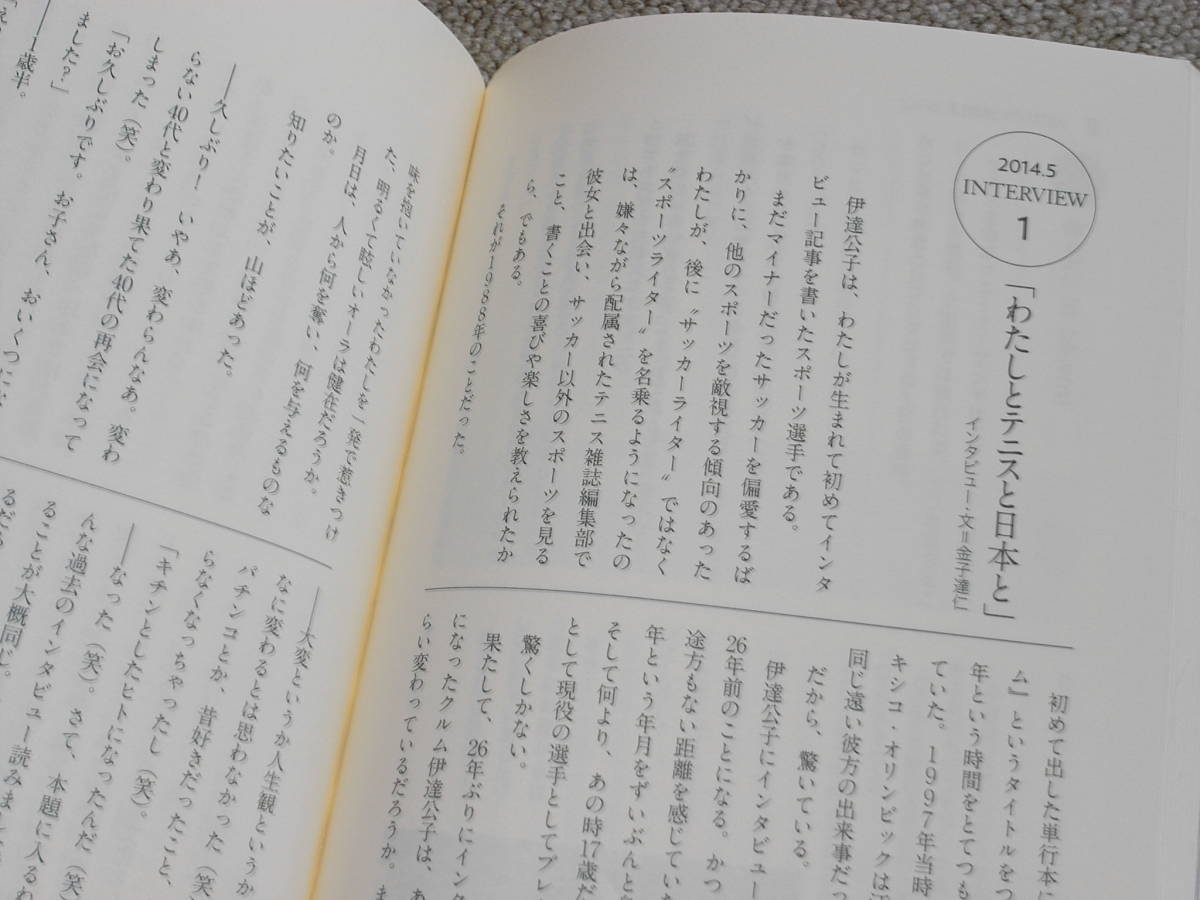 2014.5
INTERVIEW
1
「わたしとテニスと日本と」
インタビュー・文＝金子達仁
伊達公子は、わたしが生まれて初めてインタ
ビュー記事を書いたスポーツ選手である。
まだマイナーだったサッカーを偏愛するば
かりに、他のスポーツを敵視する傾向のあった
わたしが、後に〝サッカーライター〟ではなく
〝スポーツライター〟を名乗るようになったの
は、嫌々ながら配属されたテニス雑誌編集部で
彼女と出会い、サッカー以外のスポーツを見る
こと、書くことの喜びや楽しさを教えられたか
ら、でもある。
それが1988年のことだった。
初めて出した単行本に
ム』というタイトルをつ
年という時間をとてつも
ていた。1997年当時
キシコ・オリンピックは
同じ遠い彼方の出来事だっ
だから、驚いている。
伊達公子にインタビュー
26年前のことになる。かつ
途方もない距離を感じてい
年という年月をずいぶんと
そして何より、あの時17歳だ
として現役の選手としてプレ
驚くしかない。
果たして、26年ぶりにイン
になったクルム伊達公子は、あ
らい変わっているだろうか。ま
味を抱いていなかったわたしを一発で惹きつけ
た、明るくて眩しいオーラは健在だろうか。
月日は、人から何を奪い、何を与えるものな
のか。
知りたいことが、山ほどあった。
――久しぶり！　いやあ、変わらんなあ。変わ
らない40代と変わり果てた40代の再会になって
しまった（笑）。
「お久しぶりです。お子さん、おいくつにな
ました？」
――1歳半。
――大変というか人生観というか
なに変わるとは思わなかった（笑
パチンコとか、昔好きだったこと、
らなくなっちゃったし（笑）。
「キチンとしたヒトになったんだ（笑
――なった（笑）。さて、本題に入るわ
んな過去のインタビュー読みま
ることが大概同じ。